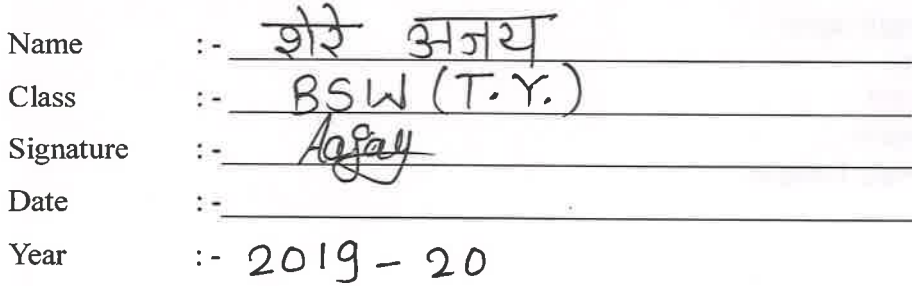 Name :- शेरे अजय
Class :- BSW (T.Y.)
Signature :- Aajay
Date :-
Year :- 2019 - 20